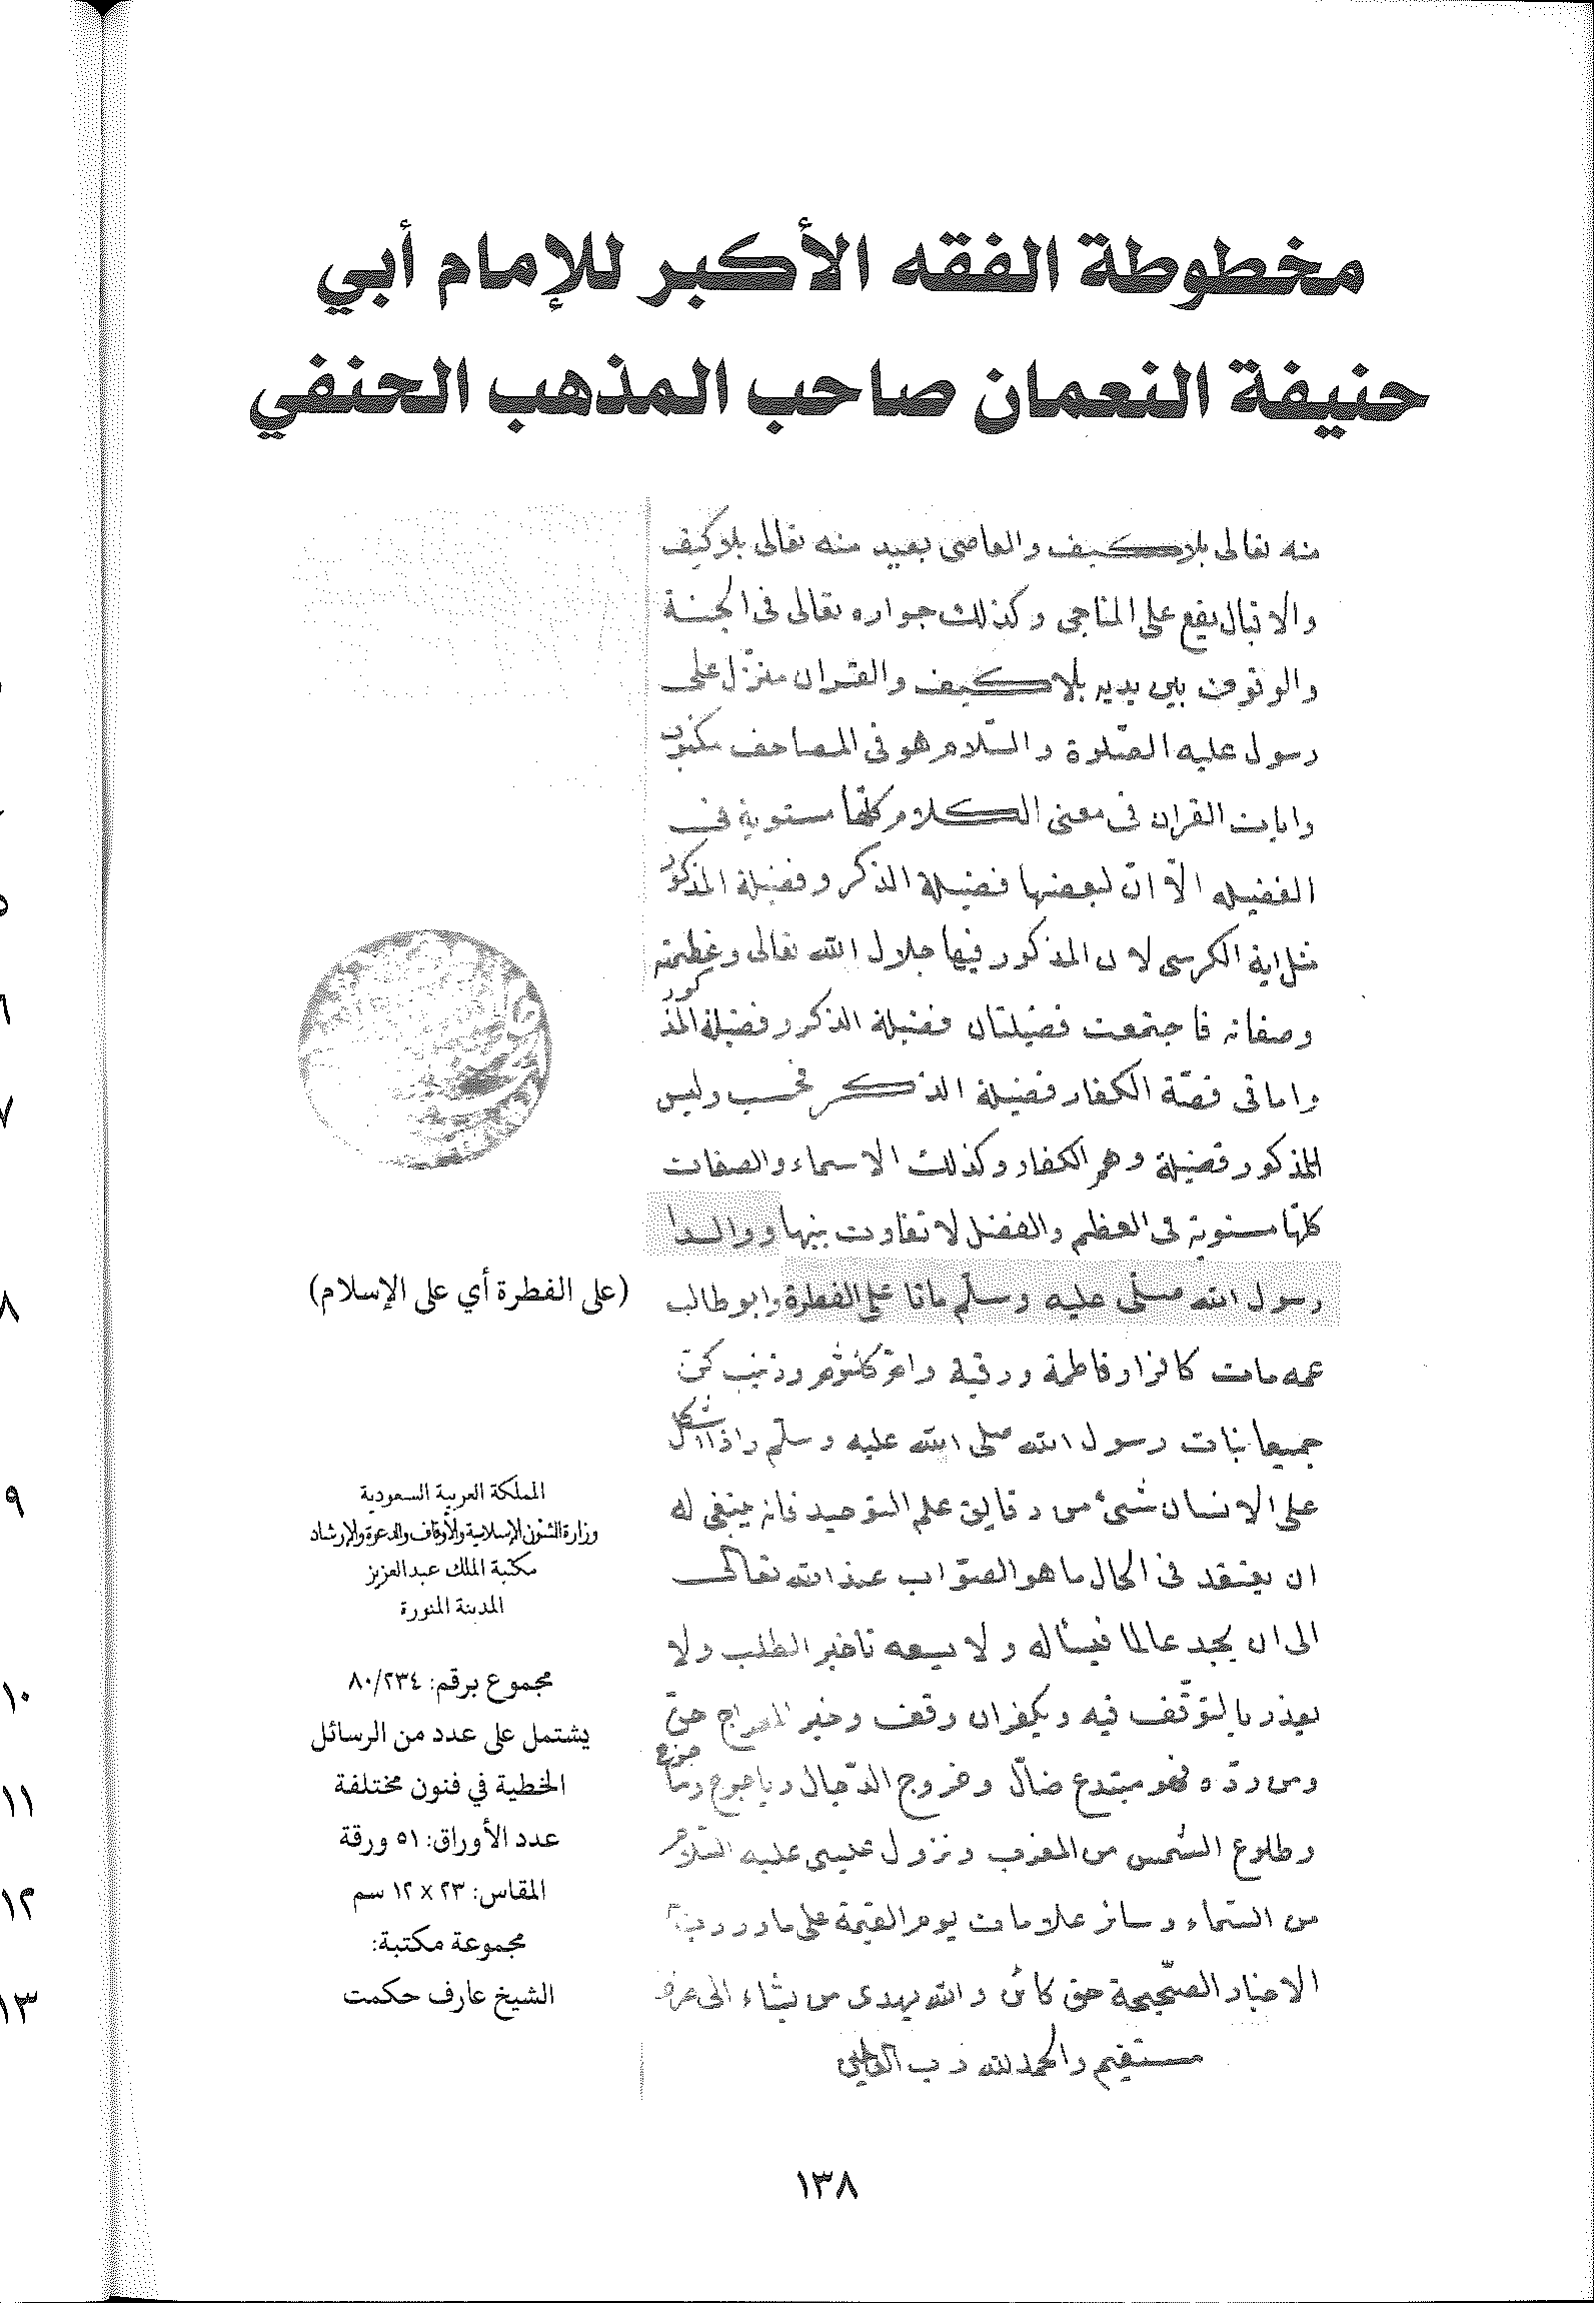 مخطوطة الفقه الأكبر للإمام أبي
حنيفة النعمان صاحب المذهب الحنفي
منه تعالى بلا كيف والعاصى بعيد منه تعالى بلا كيف
والاقبال يقع على المناجى وكذلك جواره تعالى فى الجنة
والوقوف بين يديه بلا كيف والقران منزّل على
رسول عليه الصّلوة والسّلام هو فى المصاحف مكتوب
وايات القران فى معنى الكلام كلّها مستوية فى
الفضيله الّا انّ لبعضها فضيلة الذكر وفضيلة المذكور
مثل اية الكرسى لان المذكور فيها جلال الله تعالى وعظمته
وصفاته فاجتمعت فضيلتان فضيلة الذكر وفضيلة المذكور
واما فى قصّة الكفار فضيلة الذكر فحسب وليس
للمذكور فضيلة وهم الكفار وكذلك الاسماء والصفات
كلّها مستوية فى العظم والفضل لا تفاوت بينها ووالدا
رسول الله صلّى عليه وسلّم ماتا على الفطرة وابو طالب
عمه مات كافرا وفاطمة ورقية وام كلثوم وزينب كنّ
جميعا بنات رسول الله صلى الله عليه وسلّم واذا اشكل
على الانسان شئ من دقايق علم التوحيد فانه ينبغى له
ان يعتقد فى الحال ما هو الصّواب عند الله تعالى
الى ان يجد عالما فيسأله ولا يسعه تاخير الطلب ولا
يعذر بالتوقّف فيه ويكفر ان وقف وخبر المعراج حقّ
ومن ردّه فهو مبتدع ضالّ وخروج الدّجال وياجوج وماجوج
وطلوع الشّمس من المغرب ونزول عيسى عليه السّلام
من السّماء وسائر علامات يوم القيمة على ما وردت به
الاخبار الصّحيحة حق كائن والله يهدى من يشاء الى
مستقيم والحمد لله رب العالمين
(على الفطرة أي على الإسلام)
المملكة العربية السعودية
وزارة الشئون الإسلامية والأوقاف والدعوة والإرشاد
مكتبة الملك عبدالعزيز
المدينة المنورة
مجموع برقم: ٨٠/٢٣٤
يشتمل على عدد من الرسائل
الخطية في فنون مختلفة
عدد الأوراق: ٥١ ورقة
المقاس: ٢٣ x ١٢ سم
مجموعة مكتبة:
الشيخ عارف حكمت
١٣٨
٦
٧
٨
٩
١٠
١١
١٢
١٣